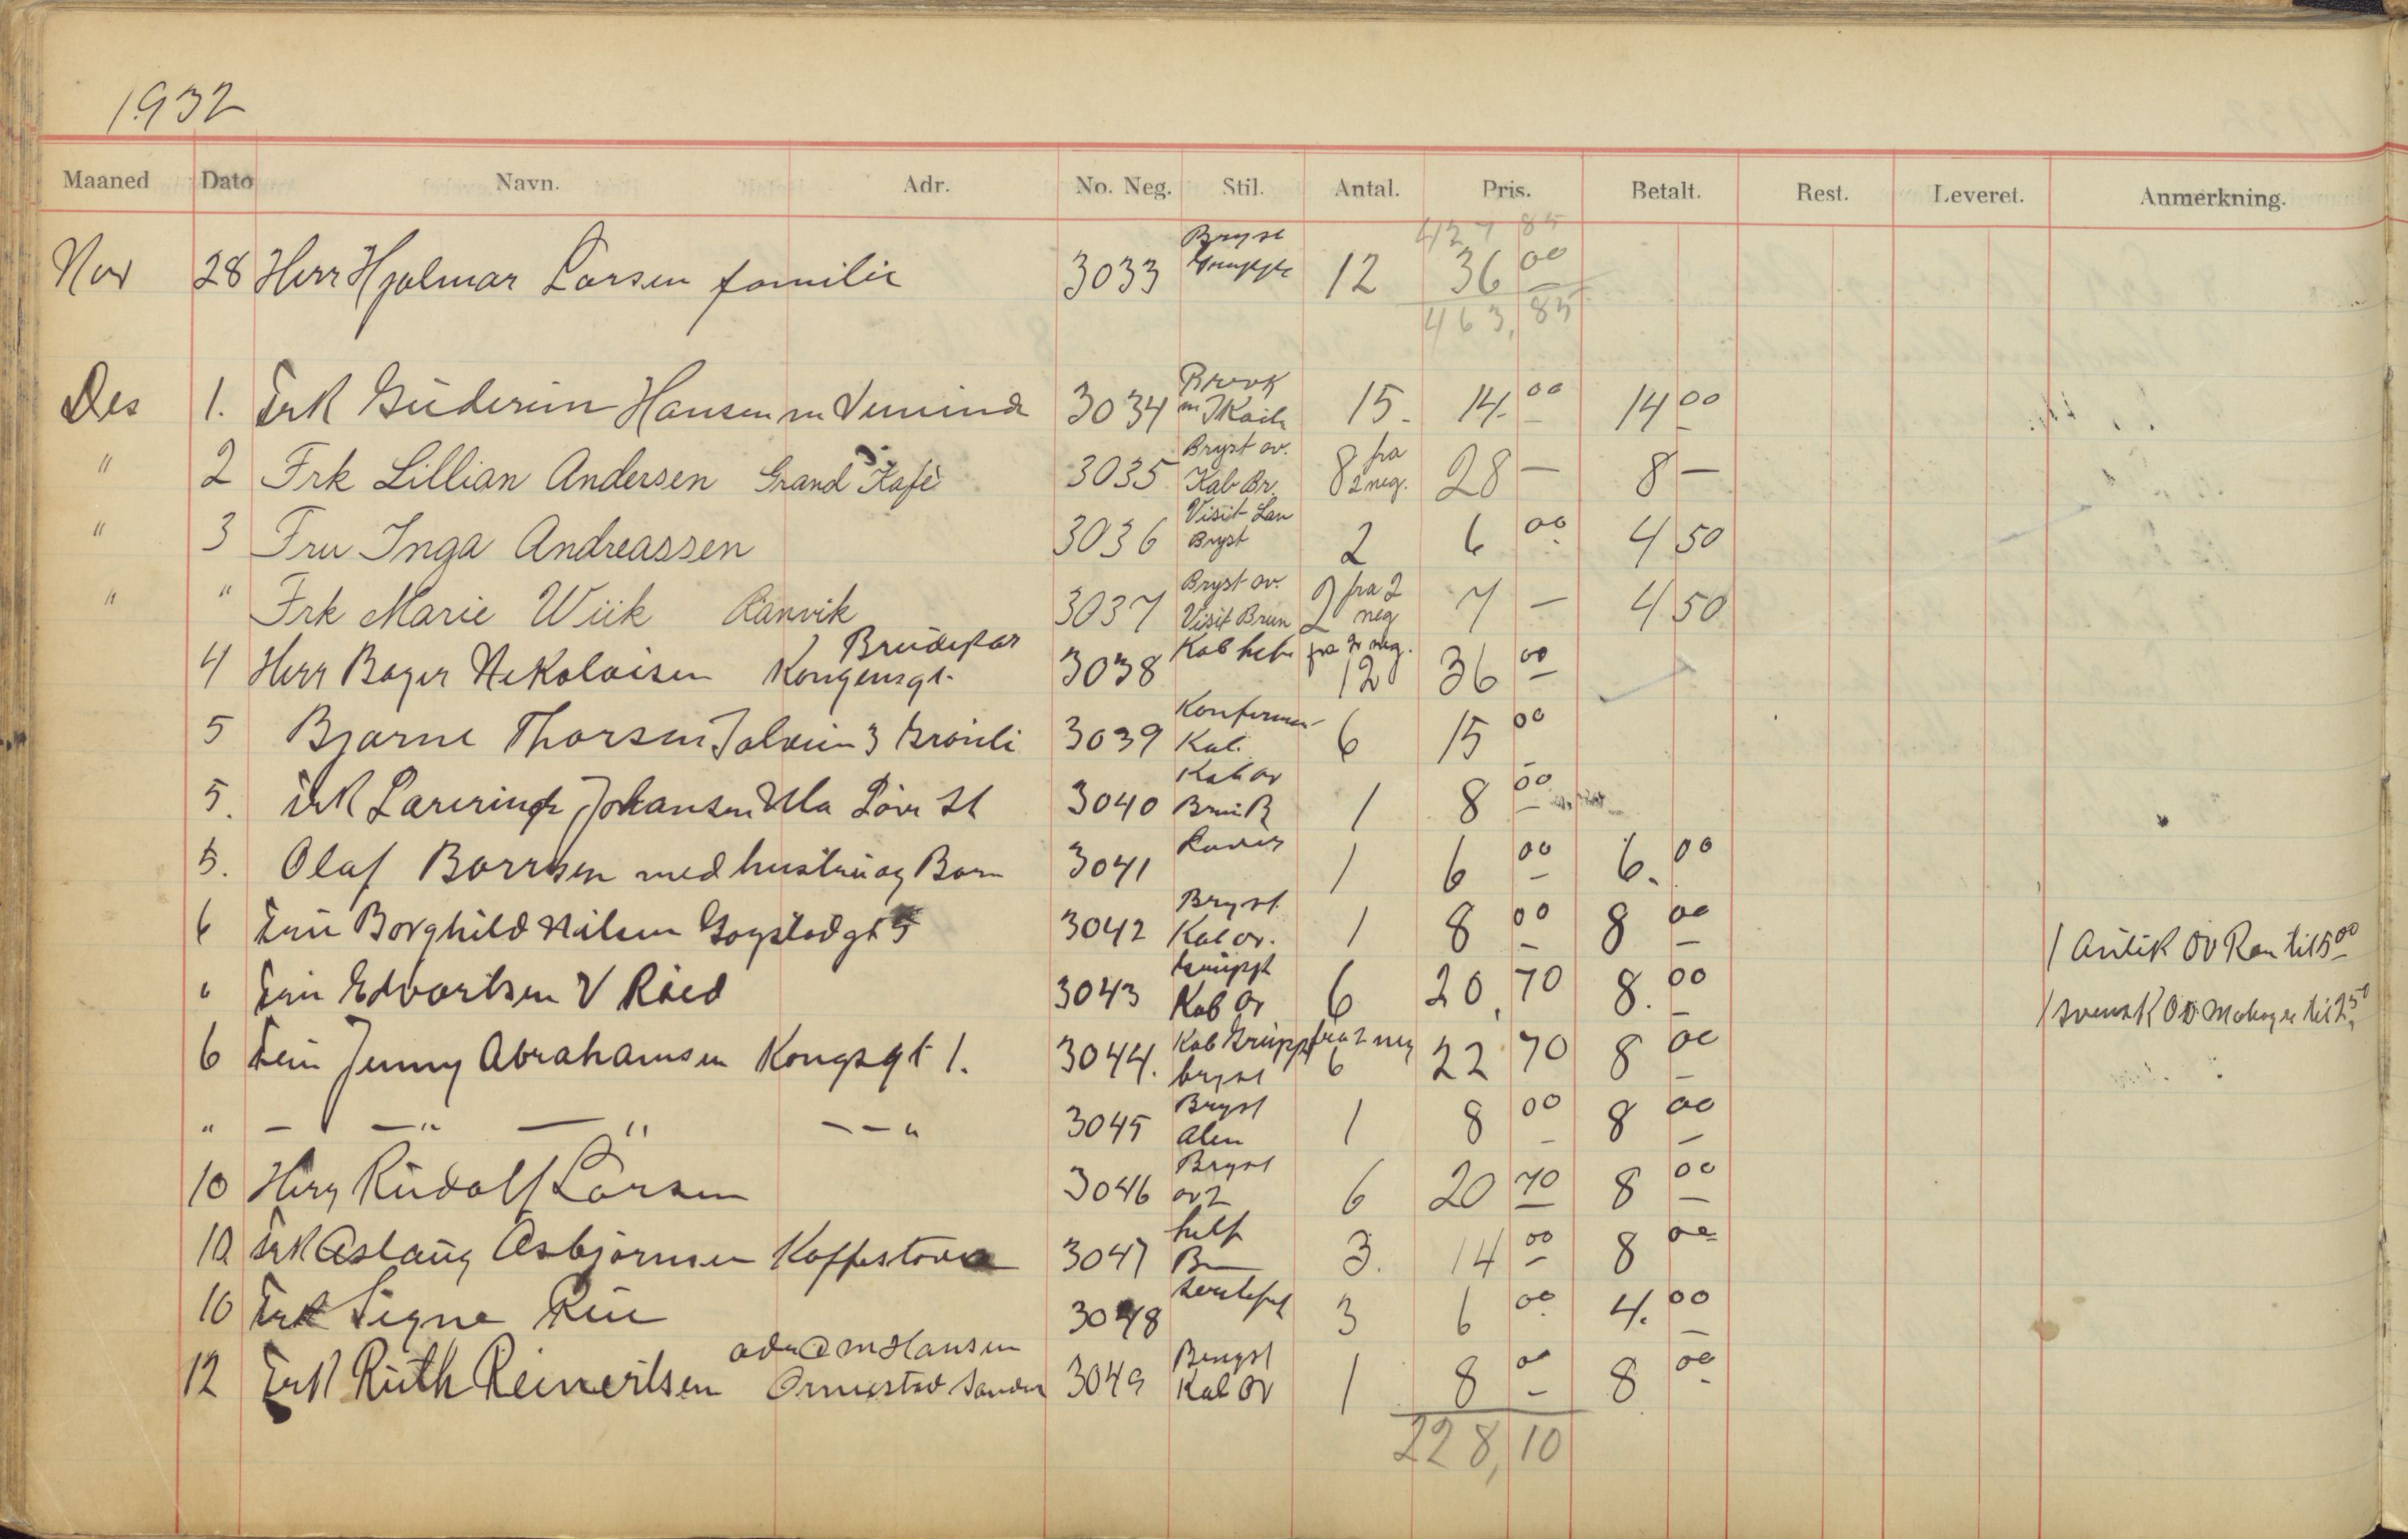 1932
Maaned Dato Navn. Adr. No. Neg. Stil. Antal. Pris. Betalt. Rest. Leveret. Anmerkning.
427 85
Nov 28 Herr Hjalmar Larsen familie 3033 Bryst Gruppe 12 36 00
463,85
Des 1. Frk Hansen m Veninde 3034 15. 14. 00 14 00
" 2 Frk Lillian Andersen Grand Kafè 3035 Bryst ov. Kab Br. 8 fra 2 neg. 28 — 8 —
" 3 Fru Inga Andreassen 3036 Visit Lan Bryst 2 6 00 4 50
" " Frk Marie Wiik Ranvik 3037 Bryst ov. Visit Brun 2 fra 2 neg 7 — 4 50
Brudepar
4 Herr Nikolaisen Kongensgt. 3038 Kab hel fra 2 neg. 12 36 00
5 Bjarne Thorsen 3039 Konfirma Kab. 6 15 00
5. Frk Johansen 3040 Kab ov 1 8 00
5. Olaf med hustru og Barn 3041 1 6 00 6. 00
6 Fru Borghild Nilsen Gogstadgt 5 3042 Bryst Kab ov. 1 8 00 8 00 1 Antik OV Ram til 5 00
" Fru Edvartsen V Råed 3043 Gruppe Kab Ov 6 20, 70 8. 00 1 svensk Ov til 2 50
6 Fru Jenny Abrahamsen Kongsgt 1. 3044. Kab Grupp bryst fra 2 neg 6 22 70 8 00
" — —" — " — — " 3045 Bryst Alen 1 8 00 8 00
10 Herr Rudolf Larsen 3046 Bryst ov 2 6 20 70 8 00
10 Frk Aslaug Asbjørnsen Kaffistova 3047 3. 14 00 8 00
10 Frk Signe 3048 3 6 00 4. 00
adr M Hansen
12 Frk Ruth Reinertsen Ormestad Sandar 3049 Bryst Kab OV 1 8 00 8 00
228,10